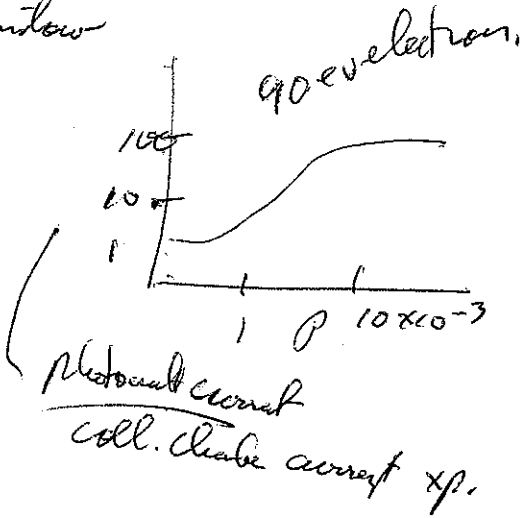 90 ev electrons.
100
10
1
1 P 10 x10-3
photomult current
coll. chambe current xp.